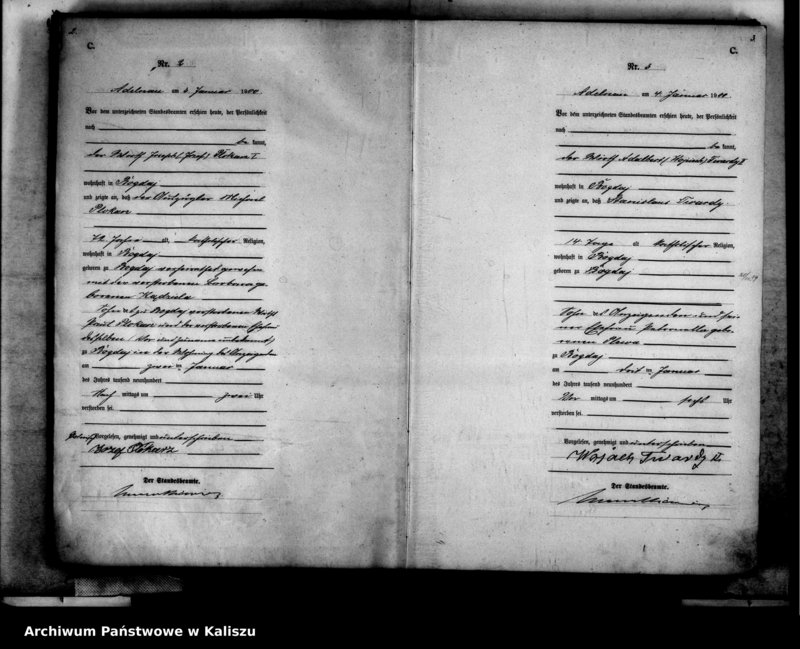 2.
C.
Nr. 2
Adelnau am 3. Januar 1900.
Vor dem unterzeichneten Standesbeamten erschien heute, der Persönlichkeit
nach
be kannt,
der Wirth Joseph (Josef) Piekarz I
wohnhaft in Bogdaj
und zeigte an, daß der Michael
Piekarz
72 Jahre alt, katholischer Religion,
wohnhaft in Bogdaj
geboren zu Bogdaj verheirathet gewesen
mit der verstorbenen Barbara ge-
borenen
Sohn des zu Bogdaj verstorbenen Wirths
und der verstorbenen Ehefrau
desselben
zu Bogdaj in der Wohnung des Anzeigenden
am zwei ten Januar
des Jahres tausend neunhundert
Nach mittags um zwei Uhr
verstorben sei.
Vorgelesen, genehmigt und unterschrieben
Józef Piekarz
Der Standesbeamte.
3
C.
Nr. 3
Adelnau am 4. Januar 1900.
Vor dem unterzeichneten Standesbeamten erschien heute, der Persönlichkeit
nach
be kannt,
der Wirth Adalbert (Wojciech) Twardy II
wohnhaft in Bogdaj
und zeigte an, daß Stanislaus Twardy
14 Tage alt, katholischer Religion,
wohnhaft in Bogdaj
geboren zu Bogdaj
Sohn des Anzeigenden und sei-
ner Ehefrau Petronella gebo-
renen
zu Bogdaj
am drit ten Januar
des Jahres tausend neunhundert
Vor mittags um sechs Uhr
verstorben sei.
Vorgelesen, genehmigt und unterschrieben
Wojciech Twardy II
Der Standesbeamte.
Archiwum Państwowe w Kaliszu